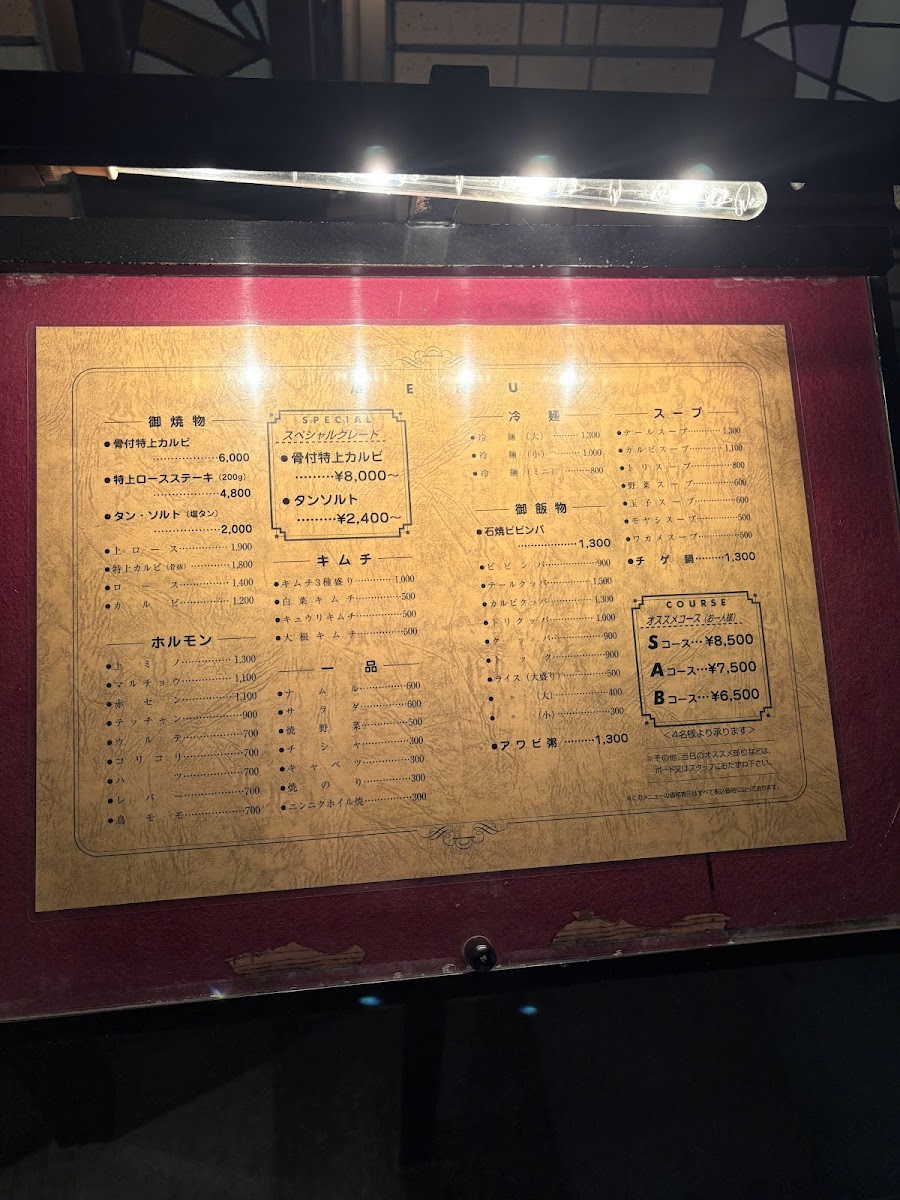 MENU
御焼物
●骨付特上カルビ
…………………6,000
●特上ロースステーキ（200g）
…………………4,800
●タン・ソルト（塩タン）
…………………2,000
●上ロース…………1,900
●特上カルビ（骨抜）…………1,800
●ロース…………1,400
●カルビ…………1,200
ホルモン
●上ミノ…………1,300
●マルチョウ…………1,100
●赤セン…………1,100
●テッチャン…………900
●ウルテ…………700
●コリコリ…………700
●ハツ…………700
●レバー…………700
●鳥モモ…………700
SPECIAL
スペシャルグレード
●骨付特上カルビ
………¥8,000～
●タンソルト
………¥2,400～
キムチ
●キムチ3種盛り…………1,000
●白菜キムチ…………500
●キュウリキムチ…………500
●大根キムチ…………500
一品
●ナムル…………600
●サラダ…………600
●焼野菜…………500
●チシャ…………300
●キャベツ…………300
●焼のり…………300
●ニンニクホイル焼…………300
冷麺
●冷麺（大）…………1,300
●冷麺（小）…………1,000
●冷麺（ミニ）…………800
御飯物
●石焼ビビンバ
…………………1,300
●ビビンバ…………900
●テールクッパ…………1,500
●カルビクッパ…………1,300
●トリクッパ…………1,000
●クッパ…………900
●トック…………900
●ライス（大盛り）…………500
●〃（大）…………400
●〃（小）…………300
●アワビ粥………1,300
スープ
●テールスープ…………1,300
●カルビスープ…………1,100
●トリスープ…………800
●野菜スープ…………600
●玉子スープ…………600
●モヤシスープ…………500
●ワカメスープ…………500
●チゲ鍋………1,300
COURSE
オススメコース（お一人様）
Sコース…¥8,500
Aコース…¥7,500
Bコース…¥6,500
＜4名様より承ります＞
※その他、当日のオススメ部位などは、
ボード又はスタッフにおたずね下さい。
※このメニューの価格表示はすべて税込価格になっております。